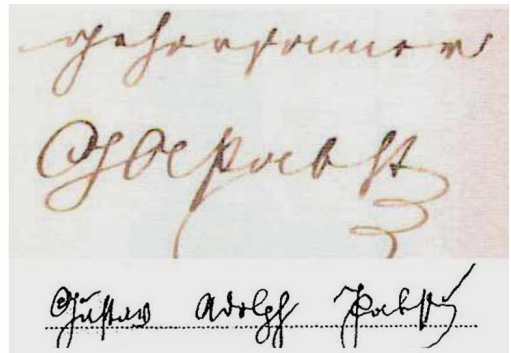 gehorsamer
GAPabst
Gustav Adolph Pabst